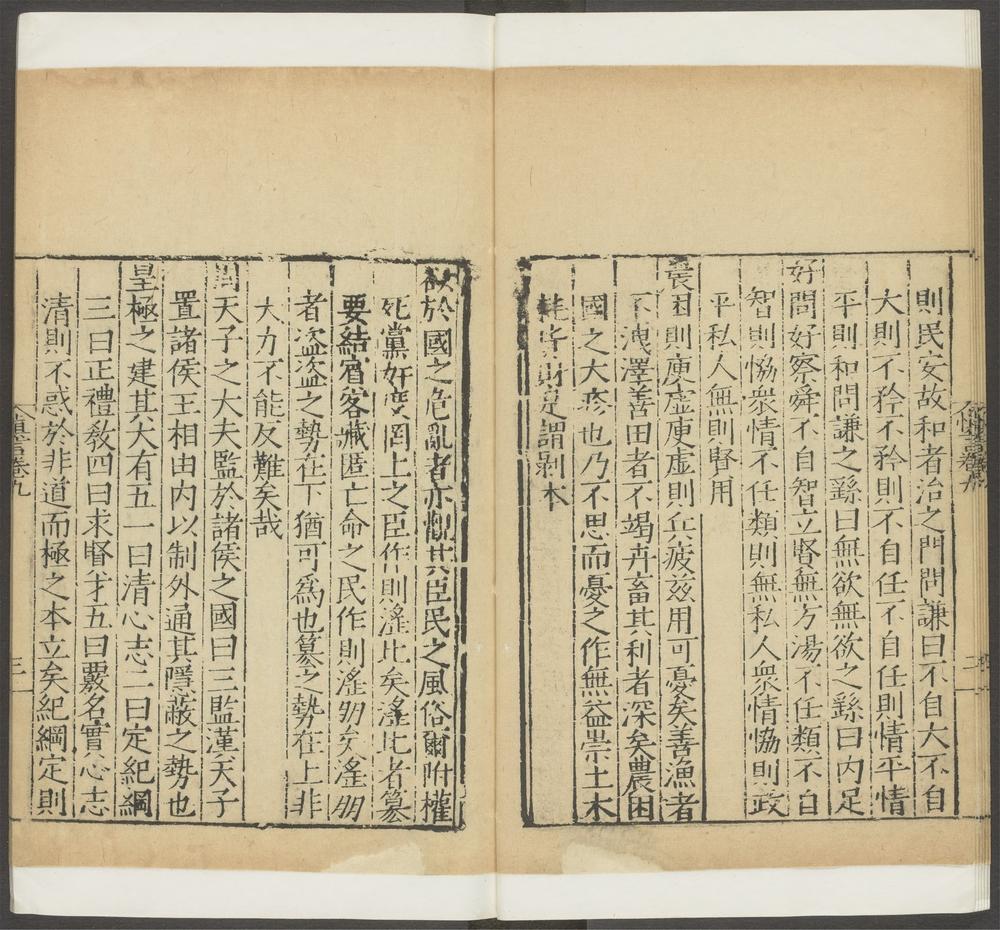 則民安故和者治之門問謙曰不自大不自
大則不矜不矜則不自任不自任則情平情
平則和問謙之繇曰無欲無欲之繇曰内足
好問好察舜不自智立賢無方湯不任類不自
智則恊衆情不任類則無私人衆情恊則政
平私人無則賢用
農困則庾虚庾虚則兵疲兹用可憂矣善漁者
不洩澤善田者不竭卉畜其利者深矣農困
國之大疹也乃不思而憂之作無益崇土木
耗貲財是謂剥本
於國之危亂者亦觀其臣民之風俗爾附權
死黨奸慶罔上之臣作則滛比矣滛比者篡
要結賓客藏匿亡命之民作則滛朋矣滛朋
者盗盗之勢在下猶可爲也篡之勢在上非
大力不能反難矣哉
周天子之大夫監於諸侯之國曰三監漢天子
置諸侯王相由内以制外通其隱蔽之勢也
皇極之建其大有五一曰清心志二曰定紀綱
三曰正禮教四曰求賢才五曰覈名實心志
清則不惑於非道而極之本立矣紀綱定則
慎言卷九
三